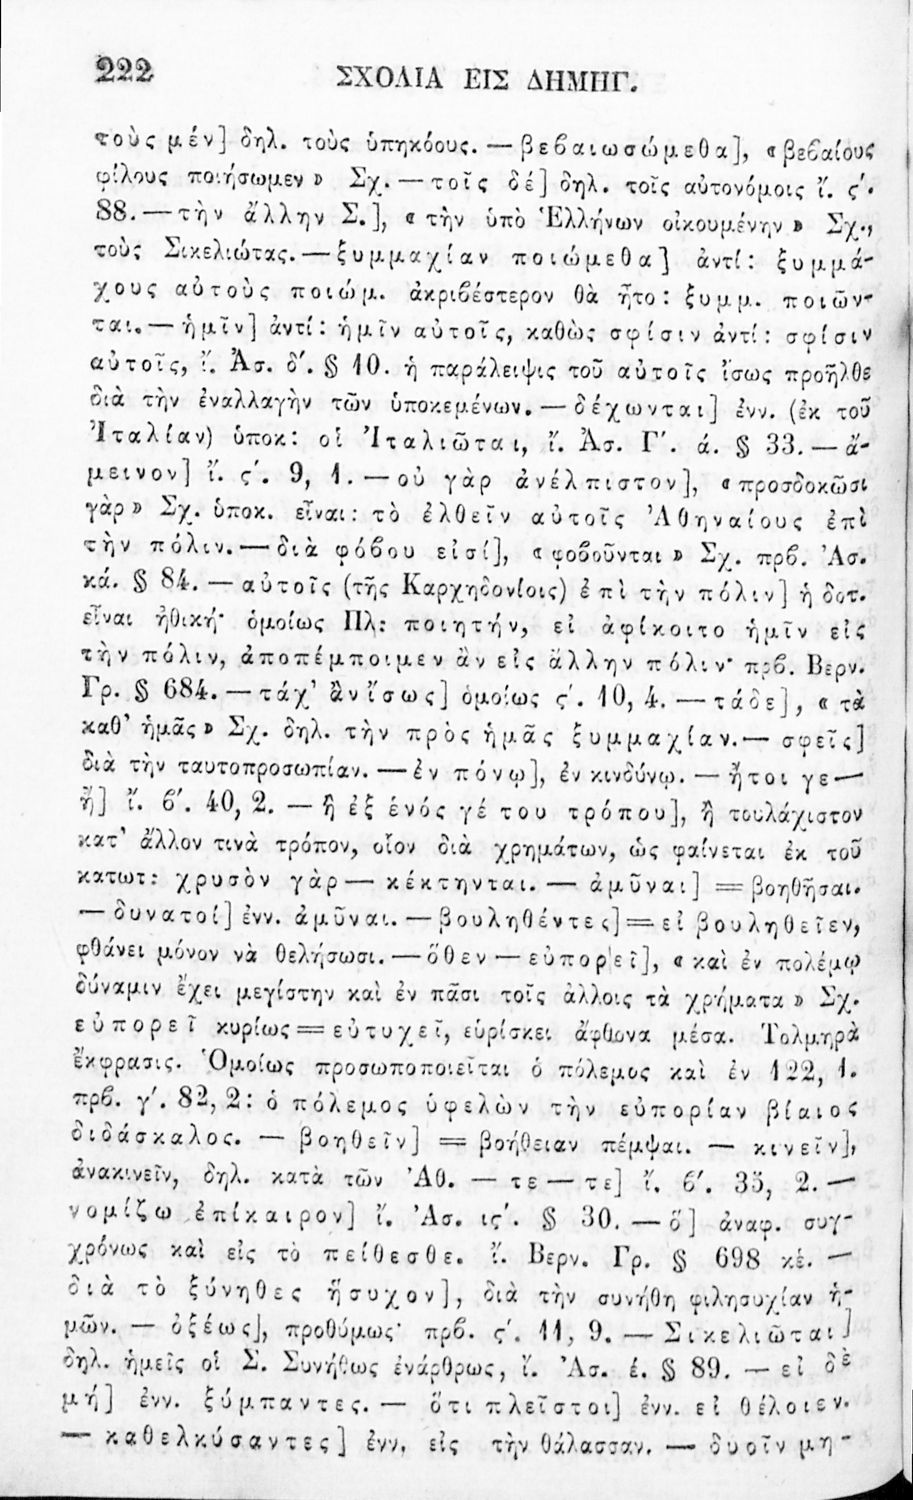 222
ΣΧΟΛΙΑ ΕΙΣ ΔΗΜΗΓ.
τοὺς μέν] δηλ. τοὺς ὑπηκόους. — βεβαιωσώμεθα], «βεβαίους
φίλους ποιήσωμεν» Σχ. — τοῖς δέ] δηλ. τοῖς αὐτονόμοις ἴ. ς΄.
88. — τὴν ἄλλην Σ.], «τὴν ὑπὸ Ἑλλήνων οἰκουμένην» Σχ.,
τοὺς Σικελιώτας. — ξυμμαχίαν ποιώμεθα] ἀντί: ξυμμά-
χους αὐτοὺς ποιώμ. ἀκριβέστερον θὰ ἦτο: ξυμμ. ποιῶν-
ται. — ἡμῖν] ἀντί: ἡμῖν αὐτοῖς, καθὼς σφίσιν ἀντί: σφίσιν
αὐτοῖς, ἴ. Ἀσ. δ΄. § 10. ἡ παράλειψις τοῦ αὐτοῖς ἴσως προῆλθε
διὰ τὴν ἐναλλαγὴν τῶν ὑποκεμένων. — δέχωνται] ἐνν. (ἐκ τοῦ
Ἰταλίαν) ὑποκ: οἱ Ἰταλιῶται, ἴ. Ἀσ. Γ΄. ά. § 33. — ἄ-
μεινον] ἴ. ς΄. 9, 1. — οὐ γὰρ ἀνέλπιστον], «προσδοκῶσι
γὰρ» Σχ. ὑποκ. εἶναι: τὸ ἐλθεῖν αὐτοῖς Ἀθηναίους ἐπὶ
τὴν πόλιν. — διὰ φόβου εἰσί], «φοβοῦνται» Σχ. πρβ. Ἀσ.
κά. § 84. — αὐτοῖς (τῆς Καρχηδονίοις) ἐπὶ τὴν πόλιν] ἡ δοτ.
εἶναι ἠθική· ὁμοίως Πλ: ποιητήν, εἰ ἀφίκοιτο ἡμῖν εἰς
τὴν πόλιν, ἀποπέμποιμεν ἂν εἰς ἄλλην πόλιν· πρβ. Βερν.
Γρ. § 684. — τάχ' ἂν ἴσως] ὁμοίως ς΄. 10, 4. — τάδε], «τὰ
καθ' ἡμᾶς» Σχ. δηλ. τὴν πρὸς ἡμᾶς ξυμμαχίαν. — σφεῖς]
διὰ τὴν ταυτοπροσωπίαν. — ἐν πόνῳ], ἐν κινδύνῳ. — ἤτοι γε —
ἢ] ἴ. β΄. 40, 2. — ἢ ἐξ ἑνός γέ του τρόπου], ἢ τουλάχιστον
κατ' ἄλλον τινὰ τρόπον, οἷον διὰ χρημάτων, ὡς φαίνεται ἐκ τοῦ
κατωτ: χρυσὸν γὰρ — κέκτηνται. — ἀμῦναι] = βοηθῆσαι.
— δυνατοί] ἐνν. ἀμῦναι. — βουληθέντες] = εἰ βουληθεῖεν,
φθάνει μόνον νὰ θελήσωσι. — ὅθεν — εὐπορεῖ], «καὶ ἐν πολέμῳ
δύναμιν ἔχει μεγίστην καὶ ἐν πᾶσι τοῖς ἀλλοις τὰ χρήματα» Σχ.
εὐπορεῖ κυρίως = εὐτυχεῖ, εὑρίσκει ἄφθονα μέσα. Τολμηρὰ
ἔκφρασις. Ὁμοίως προσωποποιεῖται ὁ πόλεμος καὶ ἐν 122, 1.
πρβ. γ΄. 82, 2: ὁ πόλεμος ὑφελὼν τὴν εὐπορίαν βίαιος
διδάσκαλος. — βοηθεῖν] = βοήθειαν πέμψαι. — κινεῖν],
ἀνακινεῖν, δηλ. κατὰ τῶν Ἀθ. — τε — τε] ἴ. β΄. 35, 2. —
νομίζω ἐπίκαιρον] ἴ. Ἀσ. ις΄. § 30. — ὅ] ἀναφ. συγ-
χρόνως καὶ εἰς τὸ πείθεσθε. ἴ. Βερν. Γρ. § 698 κἑ. —
διὰ τὸ ξύνηθες ἥσυχον], διὰ τὴν συνήθη φιλησυχίαν ἡ-
μῶν. — ὀξέως], προθύμως· πρβ. ς΄. 11, 9. — Σικελιῶται]
δηλ. ἡμεῖς οἱ Σ. Συνήθως ἐνάρθρως, ἴ. Ἀσ. έ. § 89. — εἰ δὲ
μή] ἐνν. ξύμπαντες. — ὅτι πλεῖστοι] ἐνν. εἰ θέλοιεν.
— καθελκύσαντες] ἐνν. εἰς τὴν θάλασσαν. — δυοῖν μη-